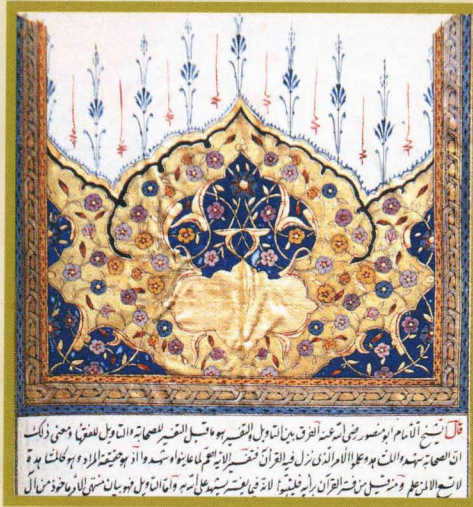 قال الشيخ الامام ابو منصور رضى الله عنه الفرق بين التاويل والتفسير هو ما قيل التفسير للصحابة والتاويل للفقها ومعنى ذلك
ان الصحابة شهدوا المشاهد وعلموا الامر الذى نزل فيه القرآن فتفسير الآية اهم لما عاينوا وشهدوا اذ هو حقيقة المراد وهو كالمشاهدة
لا تسع الا لمن علم ومنه قيل من فسر القرآن برأيه فليتبوأ لانه فيما يفسر يشهد على الله به واما التاويل فهو بيان منتهى الامر ماخوذ من آل